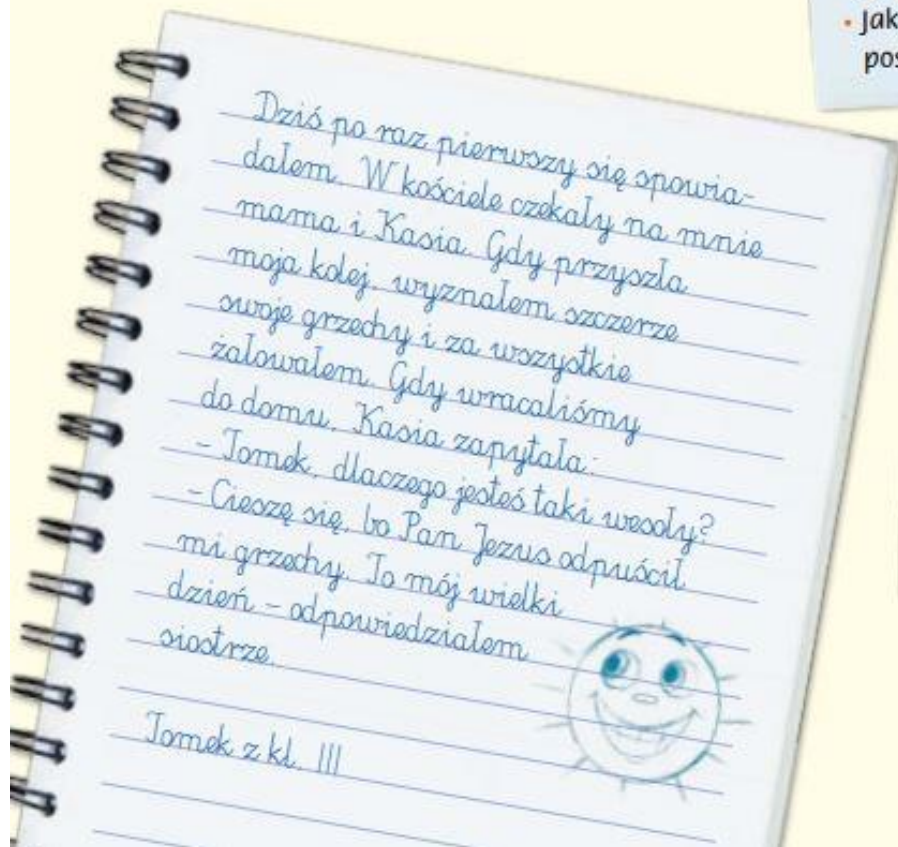 • Jak
pos
Dziś po raz pierwszy się spowia-
dałem. W kościele czekały na mnie
mama i Kasia. Gdy przyszła
moja kolej, wyznałem szczerze
swoje grzechy i za wszystkie
żałowałem. Gdy wracaliśmy
do domu, Kasia zapytała:
- Tomek, dlaczego jesteś taki wesoły?
- Cieszę się, bo Pan Jezus odpuścił
mi grzechy. To mój wielki
dzień - odpowiedziałem
siostrze.
Tomek z kl. III